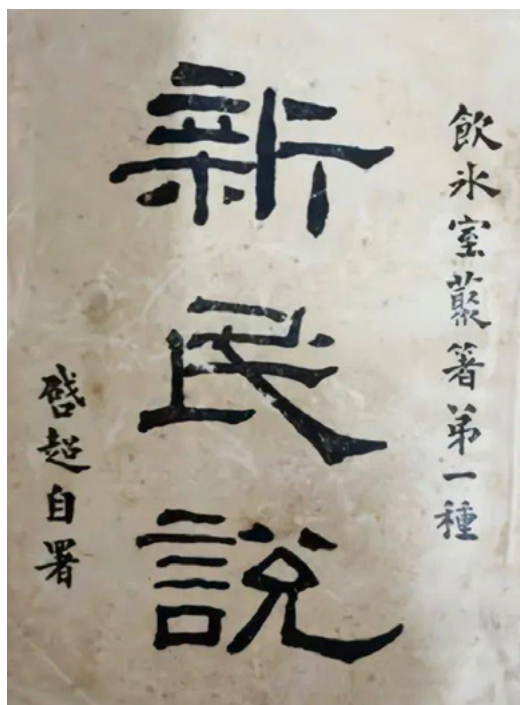 飲氷室叢著第一種
新民說
啓超自署